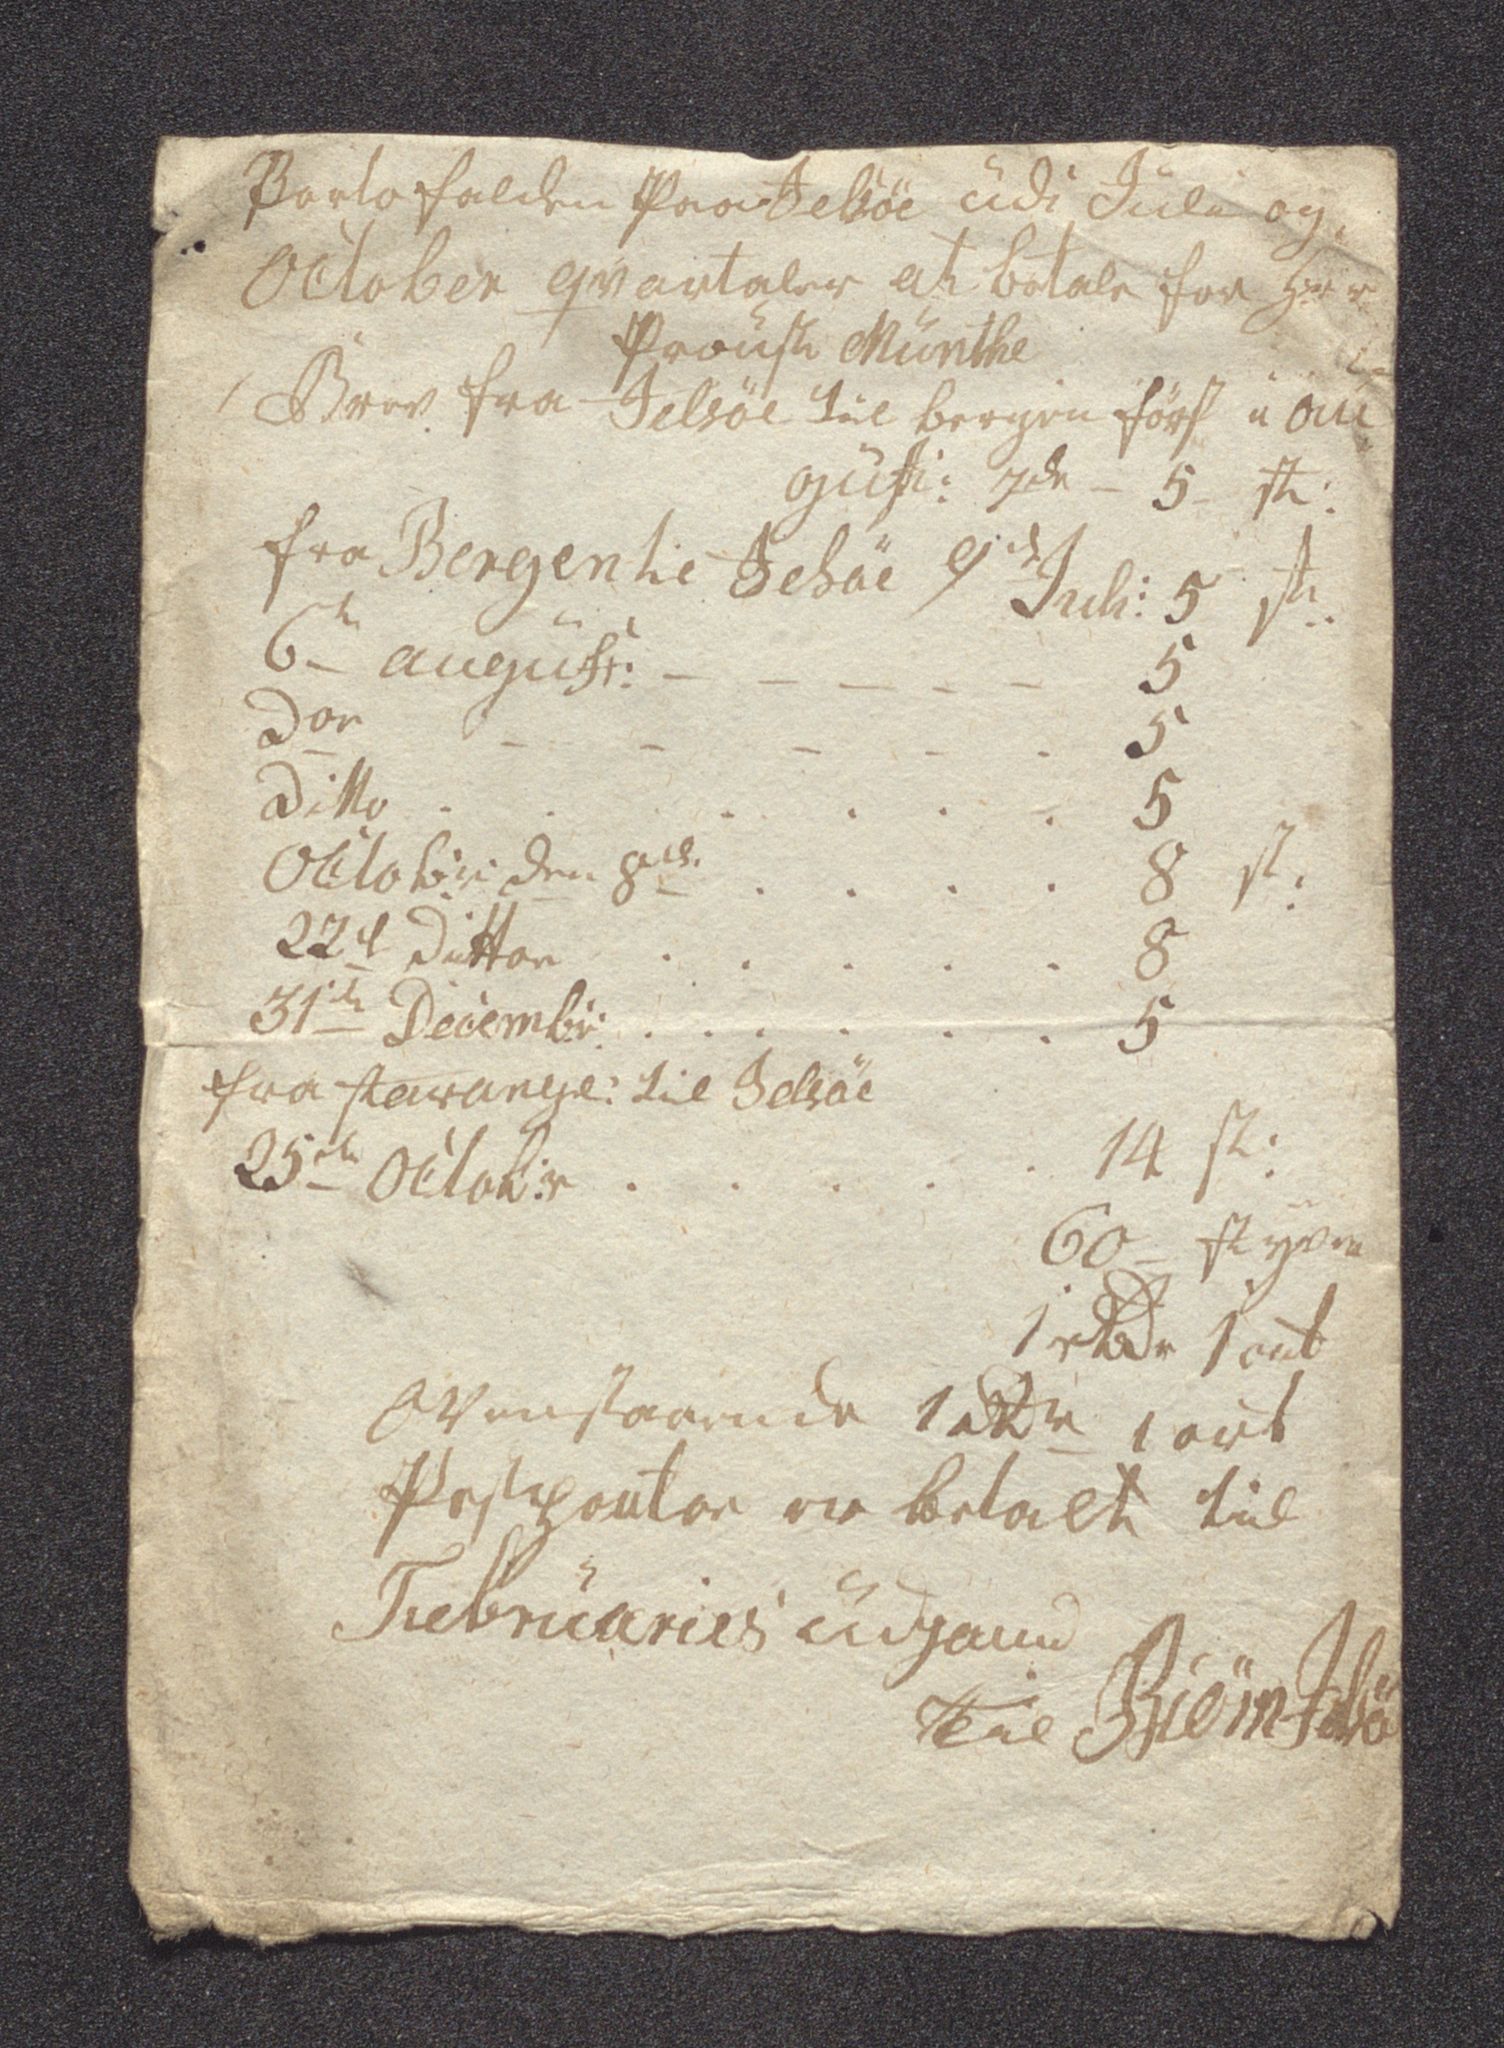 Porto falden Paa Jelsöe üdi Jüli og
October qvartaler at betale for Herr
Proüst Münthe
1 Brev fra Jelsöe til bergen förß i aü
güsti: 7de – 5 – st:
fra Bergen til Jelsöe 9de Juli: 5 st:
6te augüst: – – – – – 5
Dor – – – – . 5
Ditto . . . . . . 5
Octobr: den 8de . . . . 8 st:
22d Dittor . . . . . 8
31te Decembr: . . . . . . 5
fra stavange: til Jelsöe
25de Octobr: . . . . . 14 st:
60 – styver
1 rkdr 1 ort
Ovenstaaende 1 rdr 1 ort
Postpenter er betalt til
Februaries üdgaund
Biörn Jelsöe